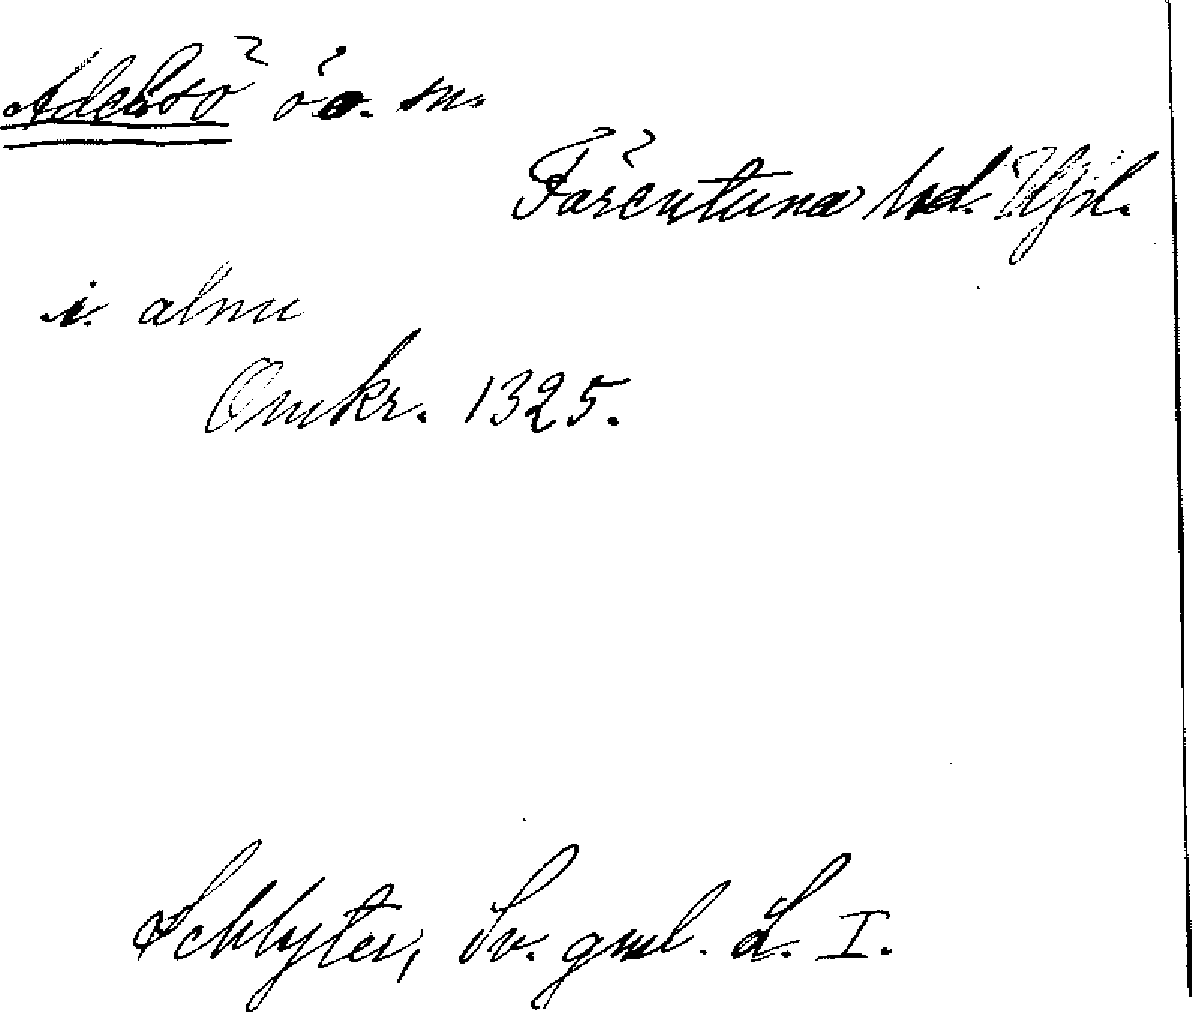 Adelsö ö o. sn.
Färentuna hd. Upl.
i. almu
Omkr. 1325.
Schlyter, Sv. gml. L. I.